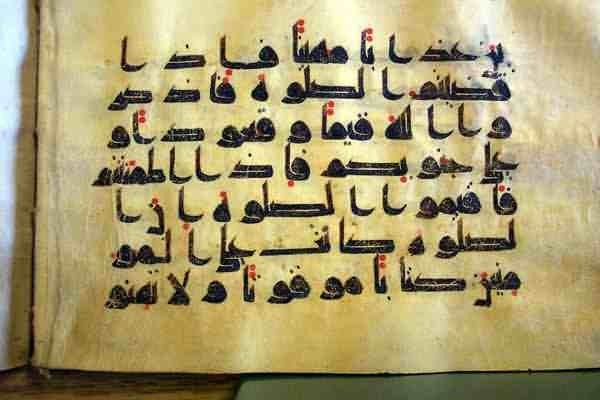 ين عذابا مهينا فاذا
قضيتم الصلوة فاذكر
وا الله قيما وقعودا و
على جنوبكم فاذا اطمننتم
فاقيموا الصلوة ان ا
لصلوة كانت على المو
منين كتابا موقوتا ولا تهنو